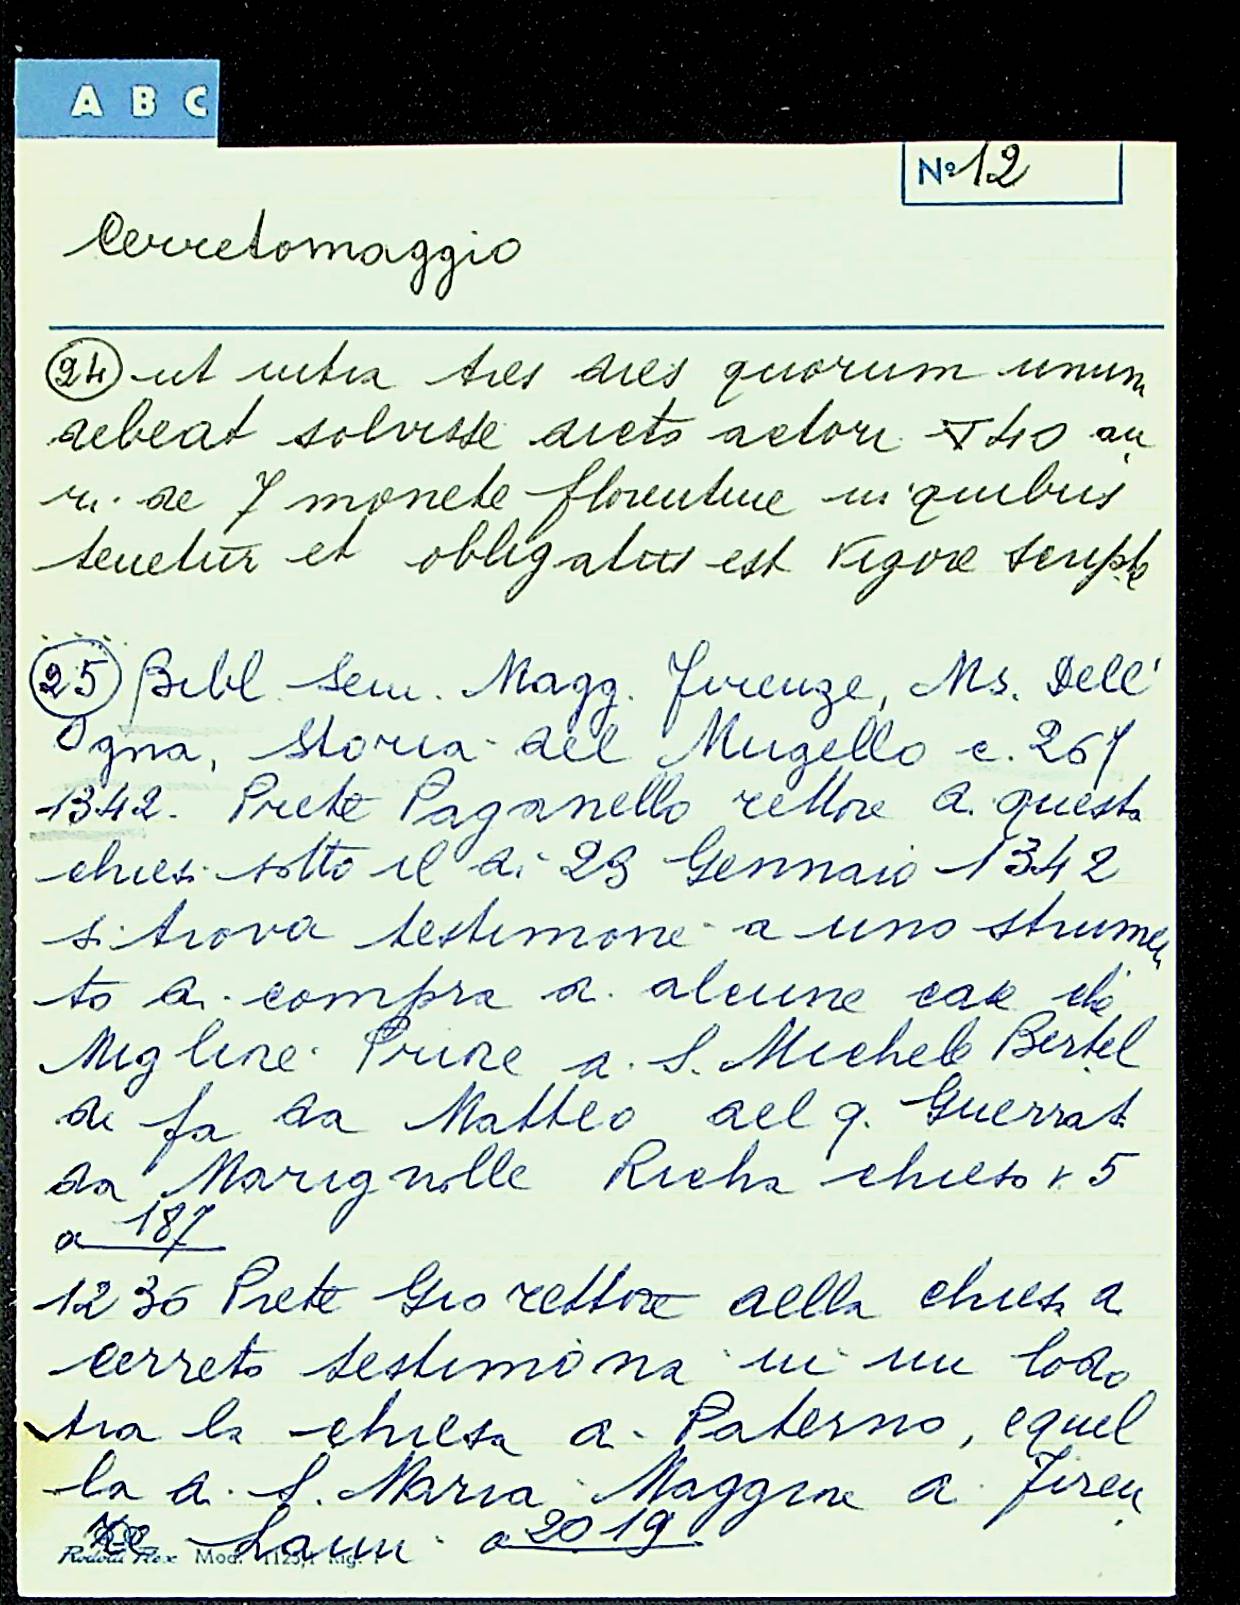 A B C
Nº 12
Cerretomaggio
24 ut intra tres dies quorum unum
debeat solvisse dicto actori 40 au
ri. de 7 monete florentine in quibus
tenetur et obligatus est vigore scripte
25 Bibl. Sem. Magg. Firenze, Ms. Dell'
Ogna, Storia del Mugello c. 267
1342. Prete Paganello rettore di questa
chiesa sotto il di 29 Gennaio 1342
si trova testimone a uno strumen
to di compra di alcune case che
Migliore Priore di S. Michele Bertel
di fa da Matteo del q. Guerrat
da Marignolle Richa chiese v. 5
a 187
1236 Prete Gio rettore della chiesa di
Cerreto testimona in un lodo
tra la chiesa di Paterno, e quel
la di S. Maria Maggiore di Firen
ze Lami a 2019
Mod. 1125/1 Rig.